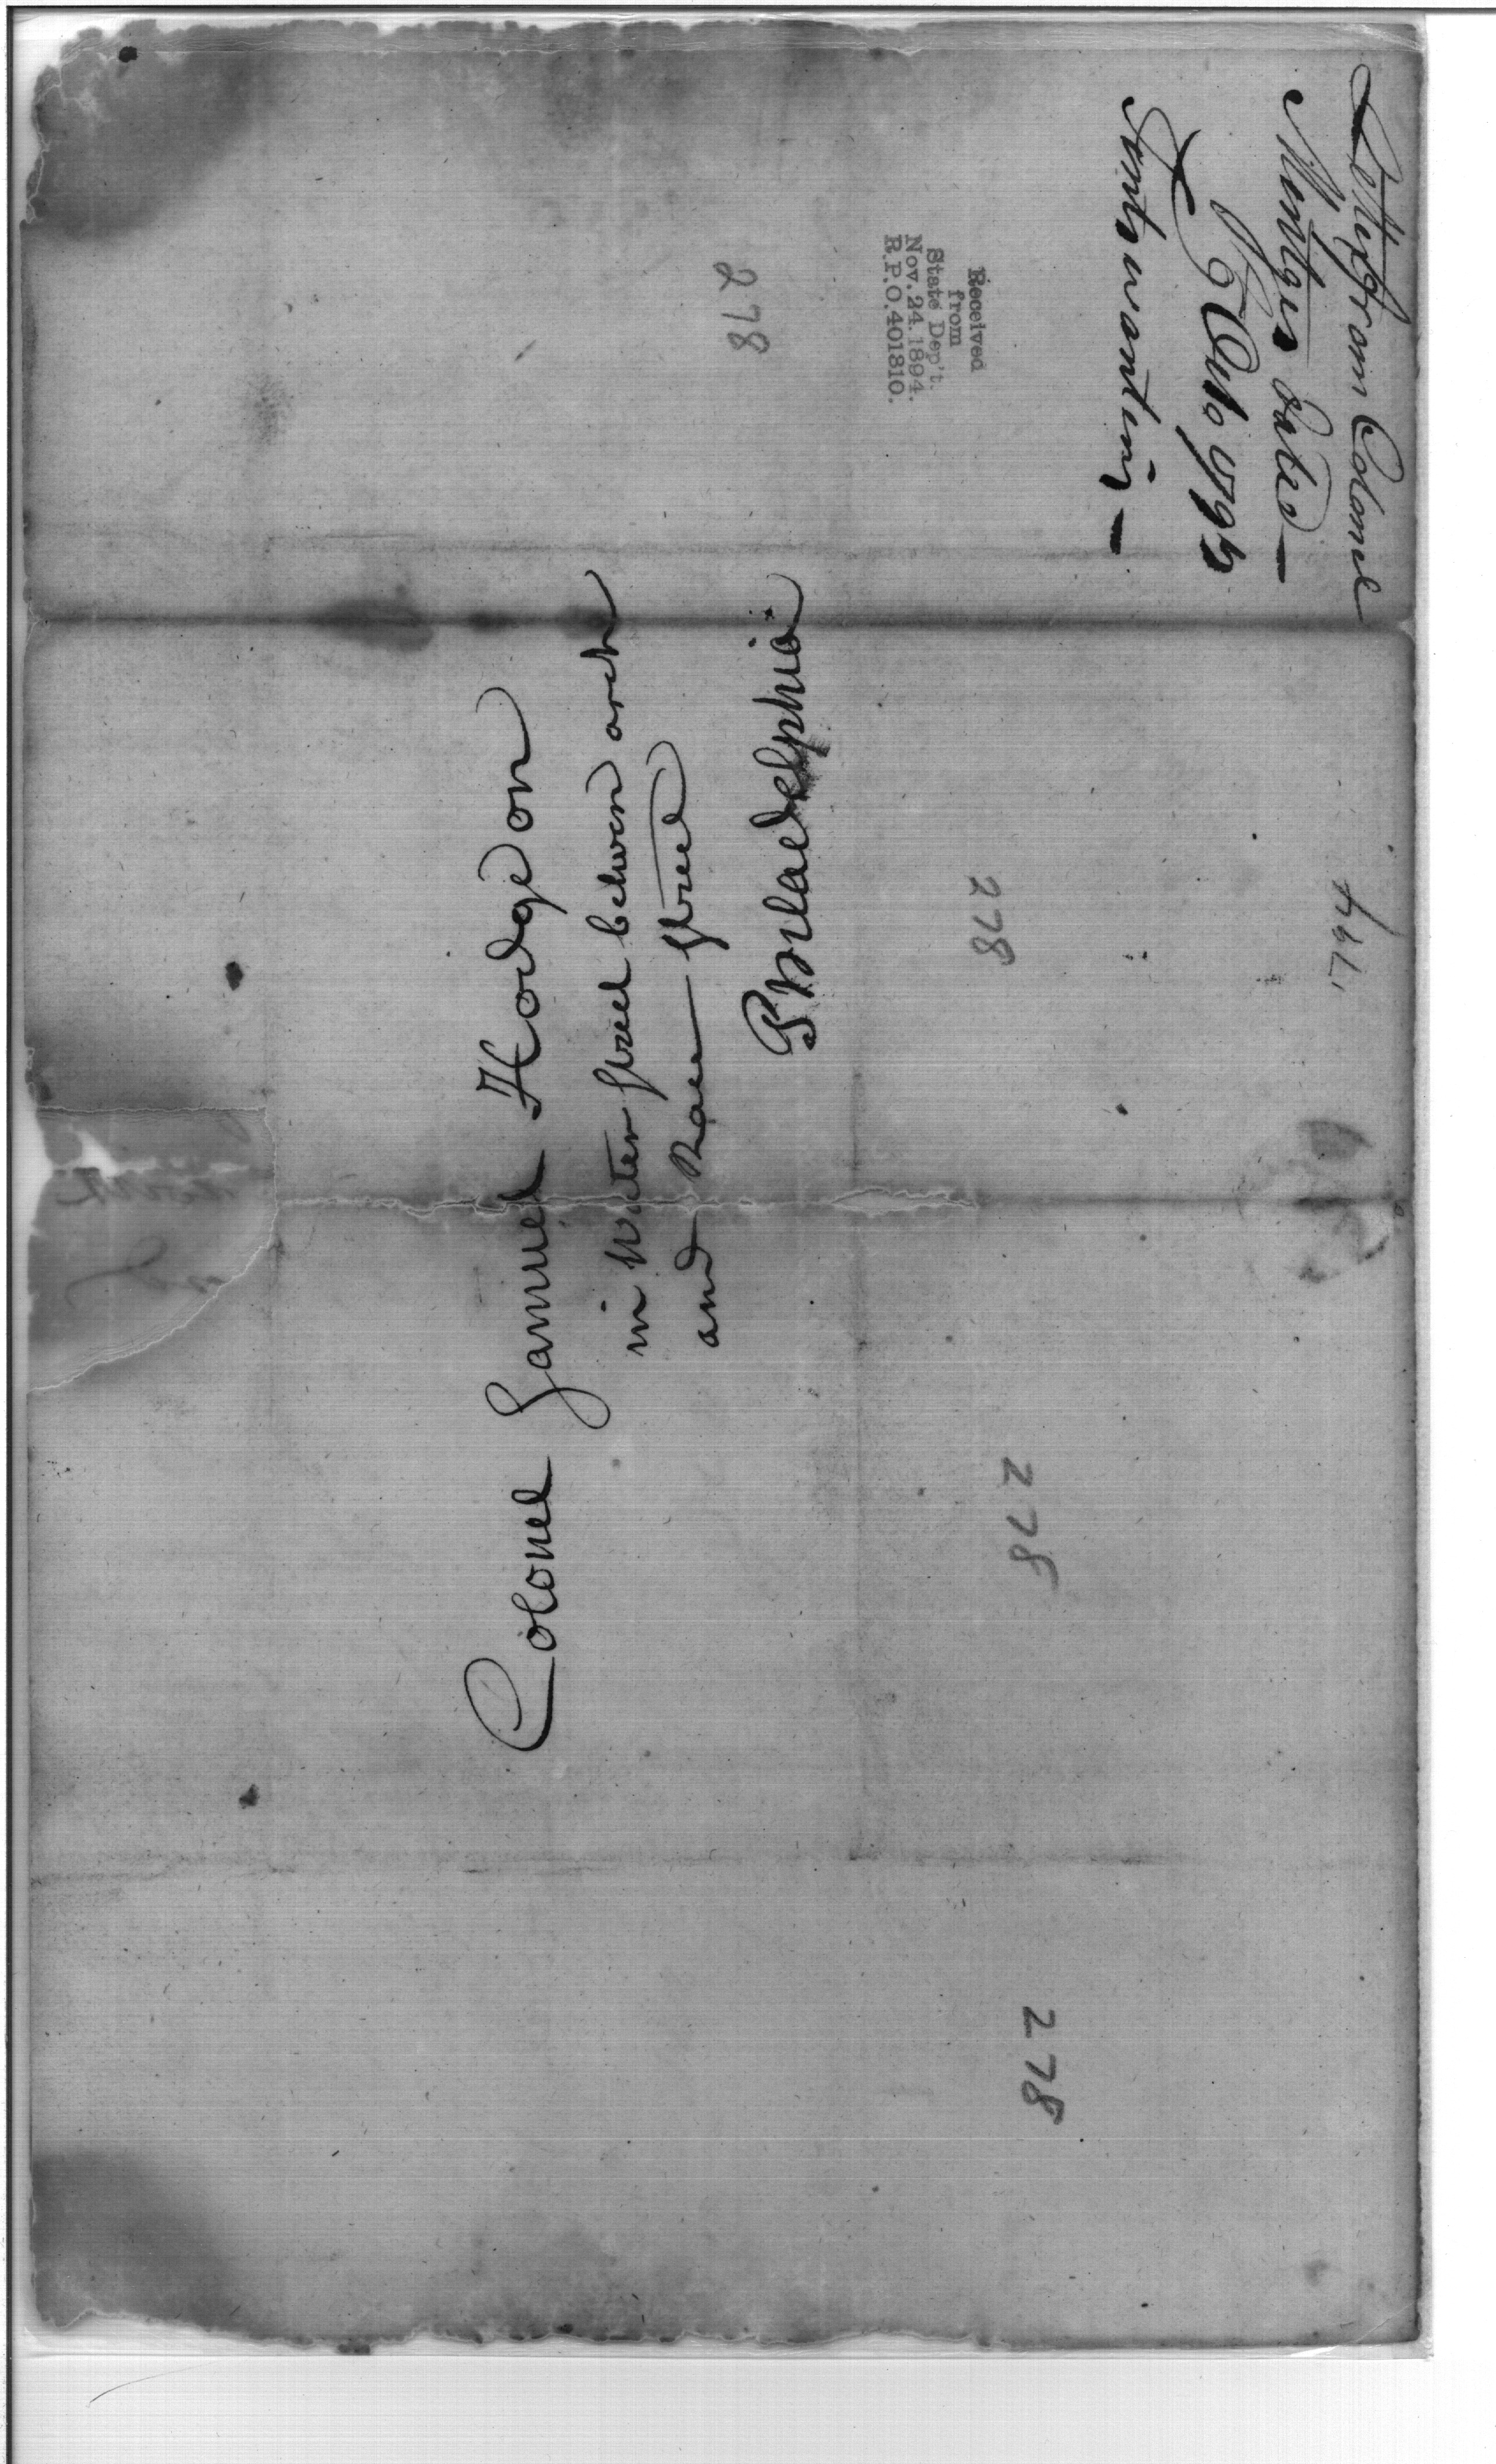 Letter from Colonel
Mentges dated
5 Octo 1793
Tents wanting
Received
from
State Dep't.
Nov. 24. 1894.
R.P.O. 401810.
278
Colonel Samuel Hodgdon
in Water Street between arch
and Race Street
Philadelphia
278
278
278